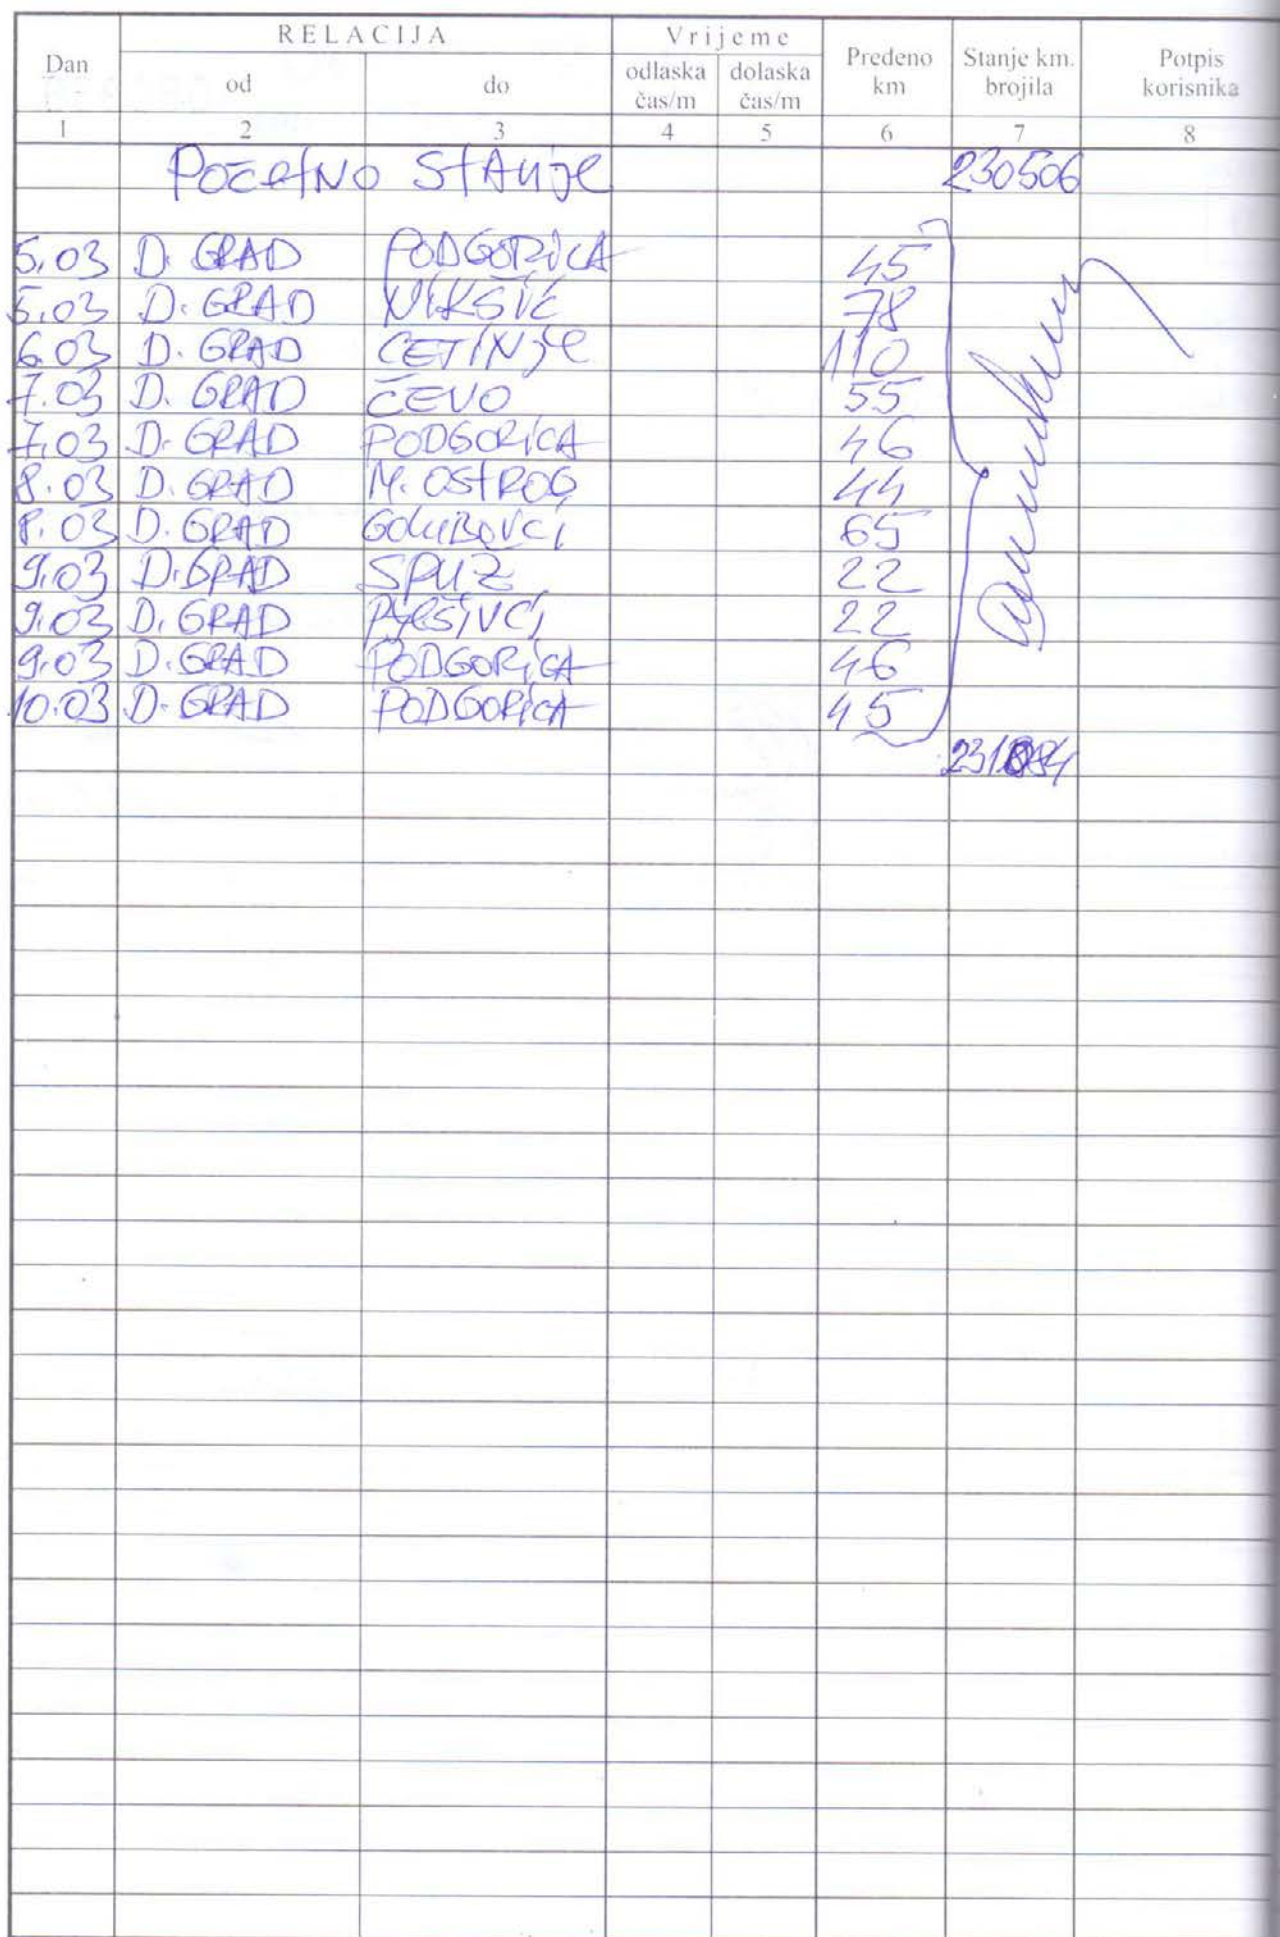 RELACIJA Vrijeme
Dan od do odlaska čas/m dolaska čas/m Pređeno km Stanje km. brojila Potpis korisnika
1 2 3 4 5 6 7 8
POČETNO STANJE 230506
5.03 D. GRAD PODGORICA 45
5.03 D. GRAD NIKŠIĆ 78
6.03 D. GRAD CETINJE 110
7.03 D. GRAD ČEVO 55
7.03 D. GRAD PODGORICA 46
8.03 D. GRAD M. OSTROG 44
8.03 D. GRAD GOLUBOVCI 65
9.03 D. GRAD SPUZ 22
9.03 D. GRAD 22
9.03 D. GRAD PODGORICA 46
10.03 D. GRAD PODGORICA 45